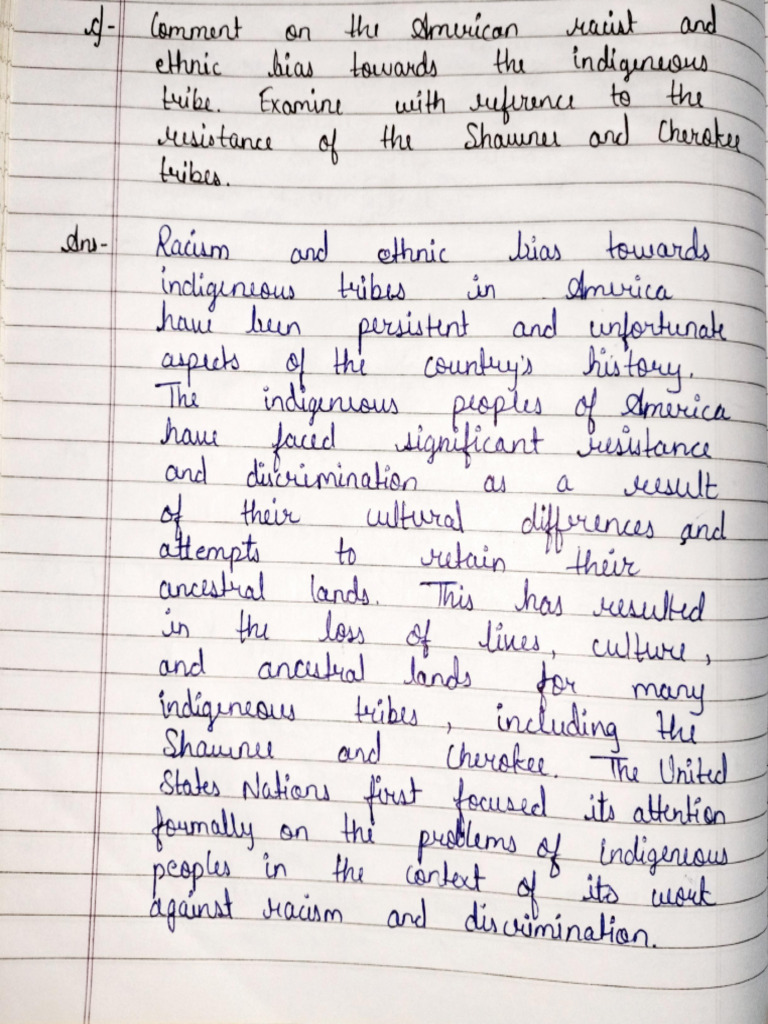 Q- Comment on the American racist and
ethnic bias towards the indigeneous
tribe. Examine with reference to the
resistance of the Shawnee and Cherokee
tribes.
Ans- Racism and ethnic bias towards
indigeneous tribes in America
have been persistent and unfortunate
aspects of the country's history.
The indigenious peoples of America
have faced significant resistance
and discrimination as a result
of their cultural differences and
attempts to retain their
ancestral lands. This has resulted
in the loss of lives, culture,
and ancestral lands for many
indigeneous tribes, including the
Shawnee and Cherokee. The United
States Nations first focused its attention
formally on the problems of indigeneous
peoples in the context of its work
against racism and discrimination.